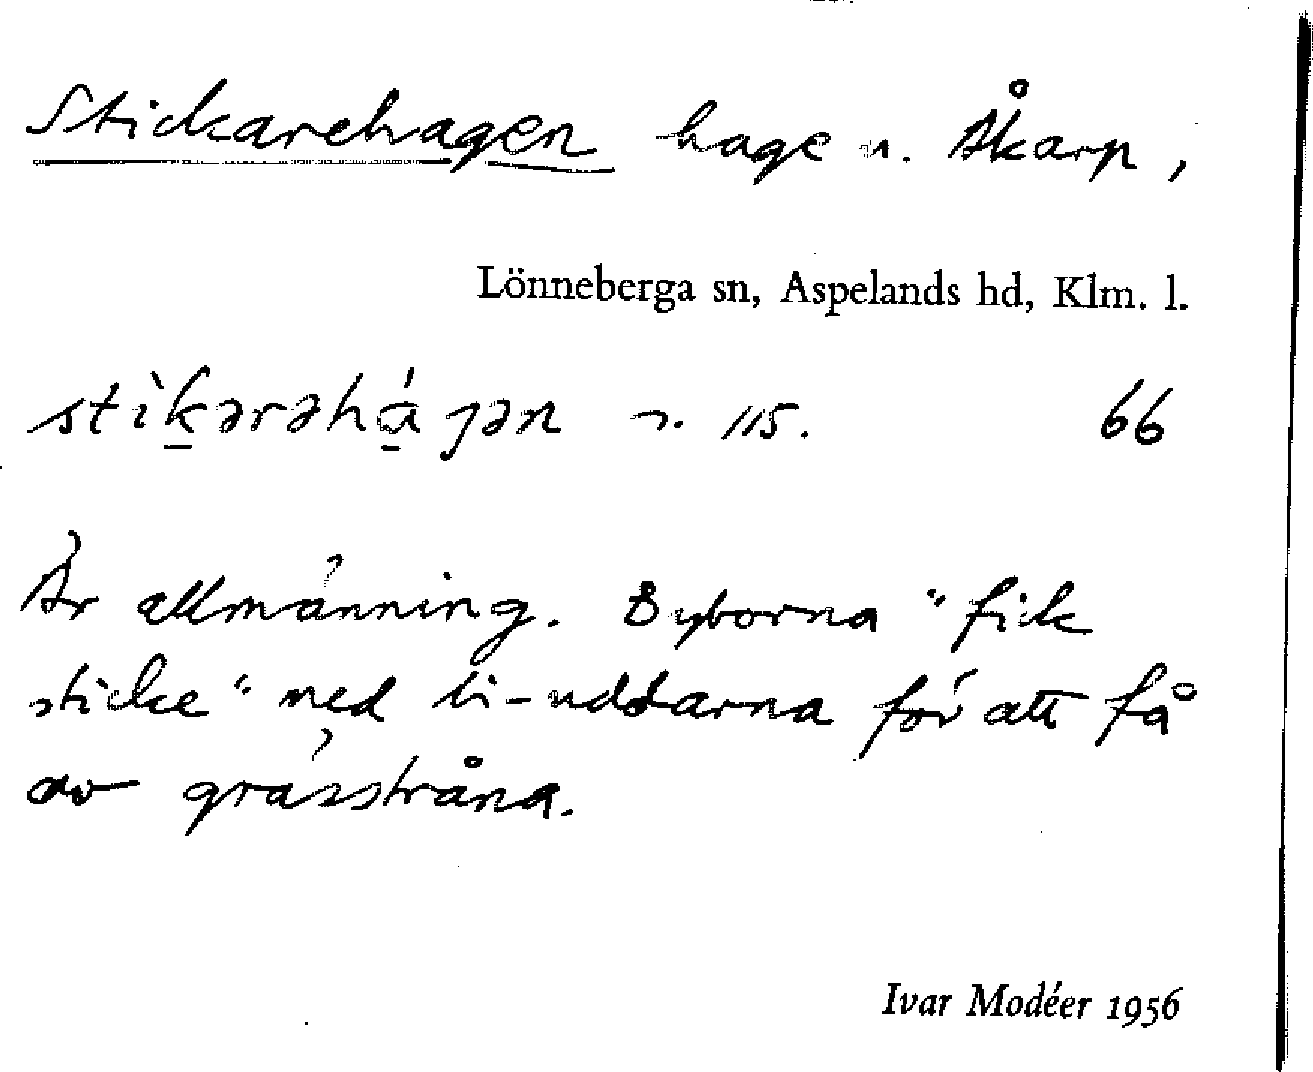 Stickarehagen hage u. Åkarp,
Lönneberga sn, Aspelands hd, Klm. l.
stìk̠ərəhá̠ɡən n. 115. 66
Är allmänning. Byborna "fick
sticke" med li-uddarna för att få
av grässtråna.
Ivar Modéer 1956